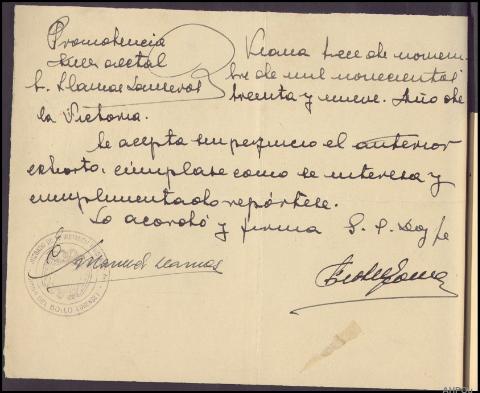 Providencia
Juez acctal
S. Llamas Canseros
Viana trece de noviem-
bre de mil novecientos
treinta y nueve. Año de
la Victoria.
Se acepta sin perjuicio el anterior
exhorto, cúmplase como se interesa y
cumplimentado repórtese.
Lo acordó y firma S. S. Doy fe
Manuel Llamas
BOLLO
AHPOu